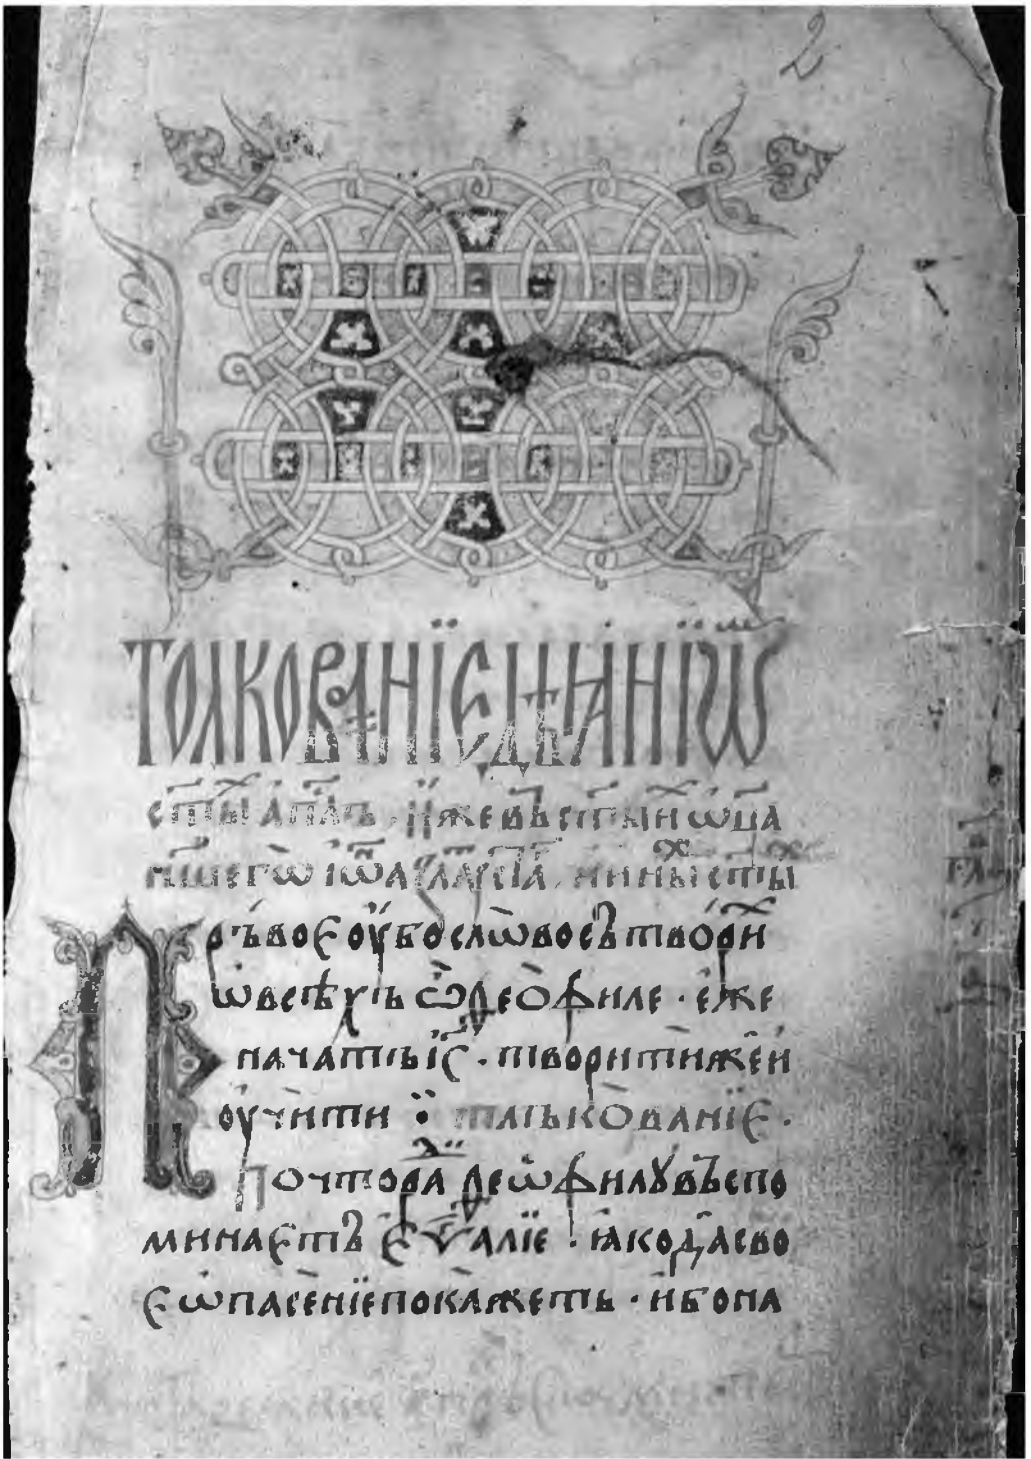 2
толкованїе дѣанїѡм
ст҃ы х҃ ап҃лъ · и҆́же въ ст҃ы х҃ ѡ҆ц҃а
н҃шегѡ і҆ѡ҃а зла҃ꙋста҃ · и҆ и҆ны х҃ ст҃ы х҃
Пръвоє оу҆́бо слѡ́во сътвори х҃
ѡ҆ въсѣхь ѽ ѳеѡ́филе · є҆́же
начать і҆с҃ · творити же и҆
оу҆чи́ти ⁘ тлъкова́нїє ·
Почто ѳеѡ́филꙋ въспо
минаєть є҆ѵ҃алїе · ꙗ҆ко да сво
є ѡ҆пасе́нїе пока́жеть · и҆бо на